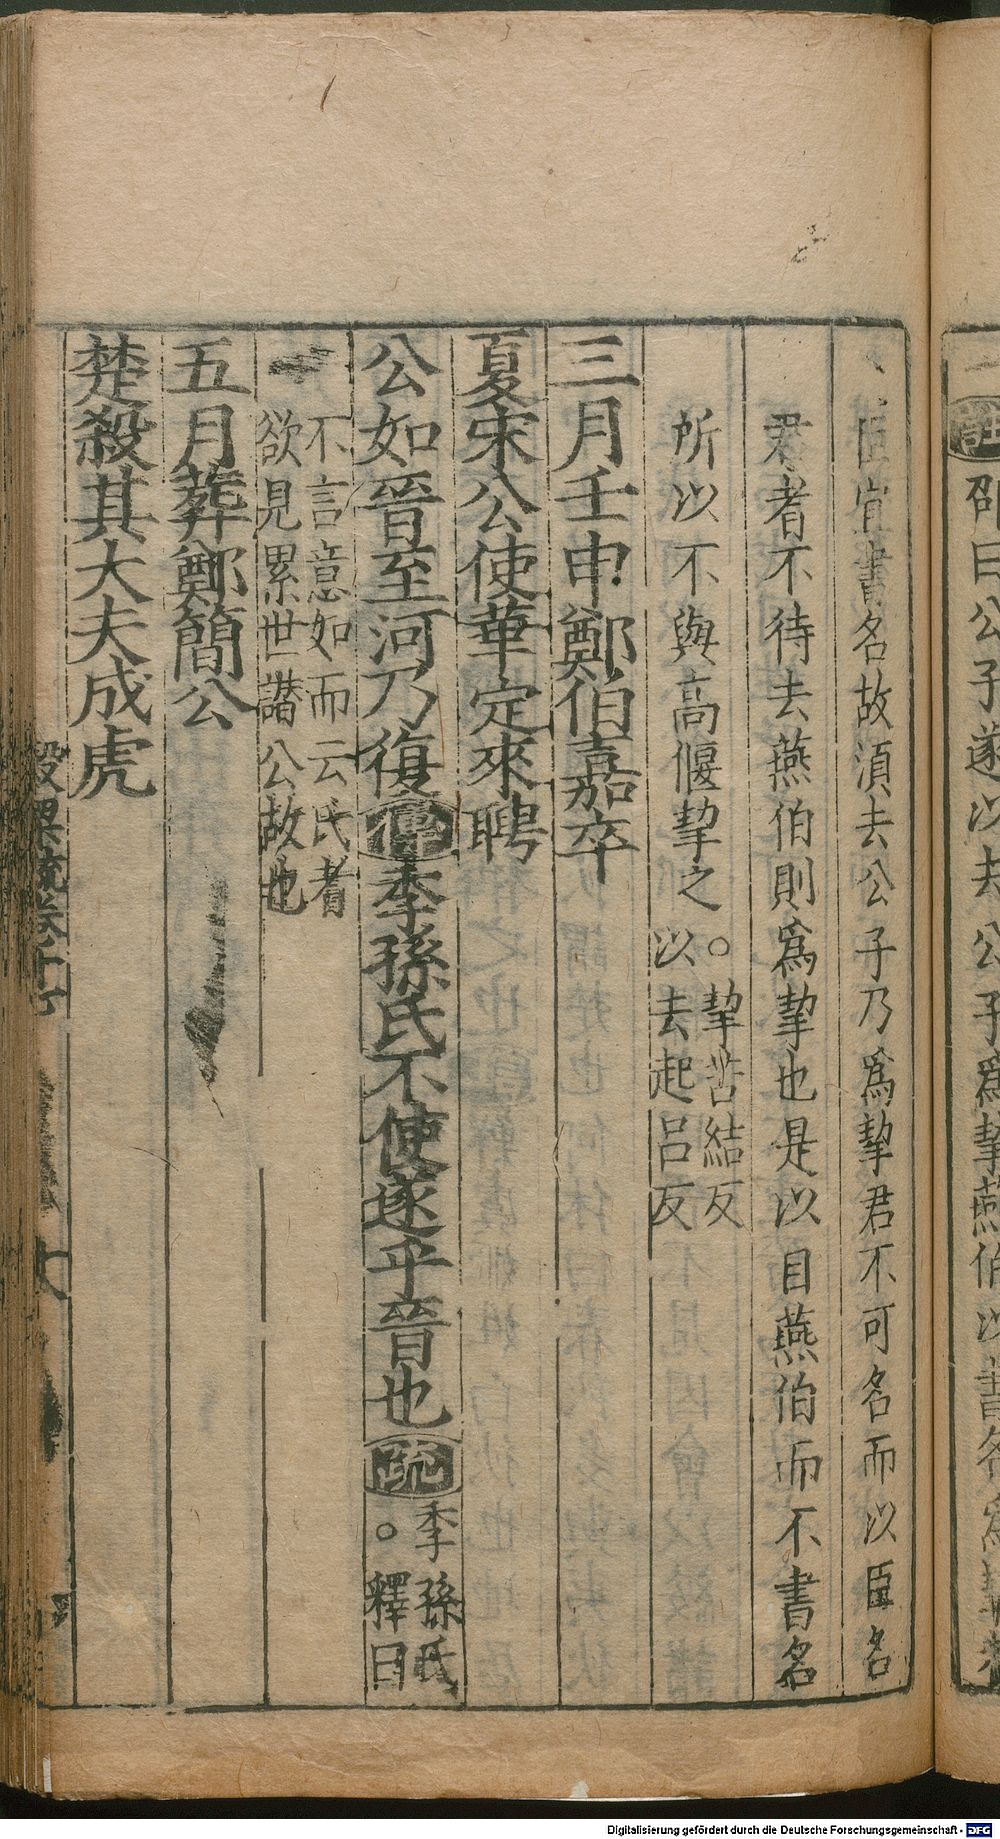 邵曰公子遂以去公子爲挈燕伯以書名爲挈者
臣宜書名故須去公子乃爲挈君不可名而以臣名
君者不待去燕伯則爲挈也是以目燕伯而不書名
所以不與高偃挈之。挈苦結反
以去起呂反
三月壬申鄭伯嘉卒
夏宋公使華定來聘
公如晉至河乃復傳季孫氏不使遂乎晉也疏季孫氏
。釋曰
不言意如而云氏者
欲見累世譖公故也
五月葬鄭簡公
楚殺其大夫成虎
穀梁疏卷十七
Digitalisierung gefördert durch die Deutsche Forschungsgemeinschaft - DFG